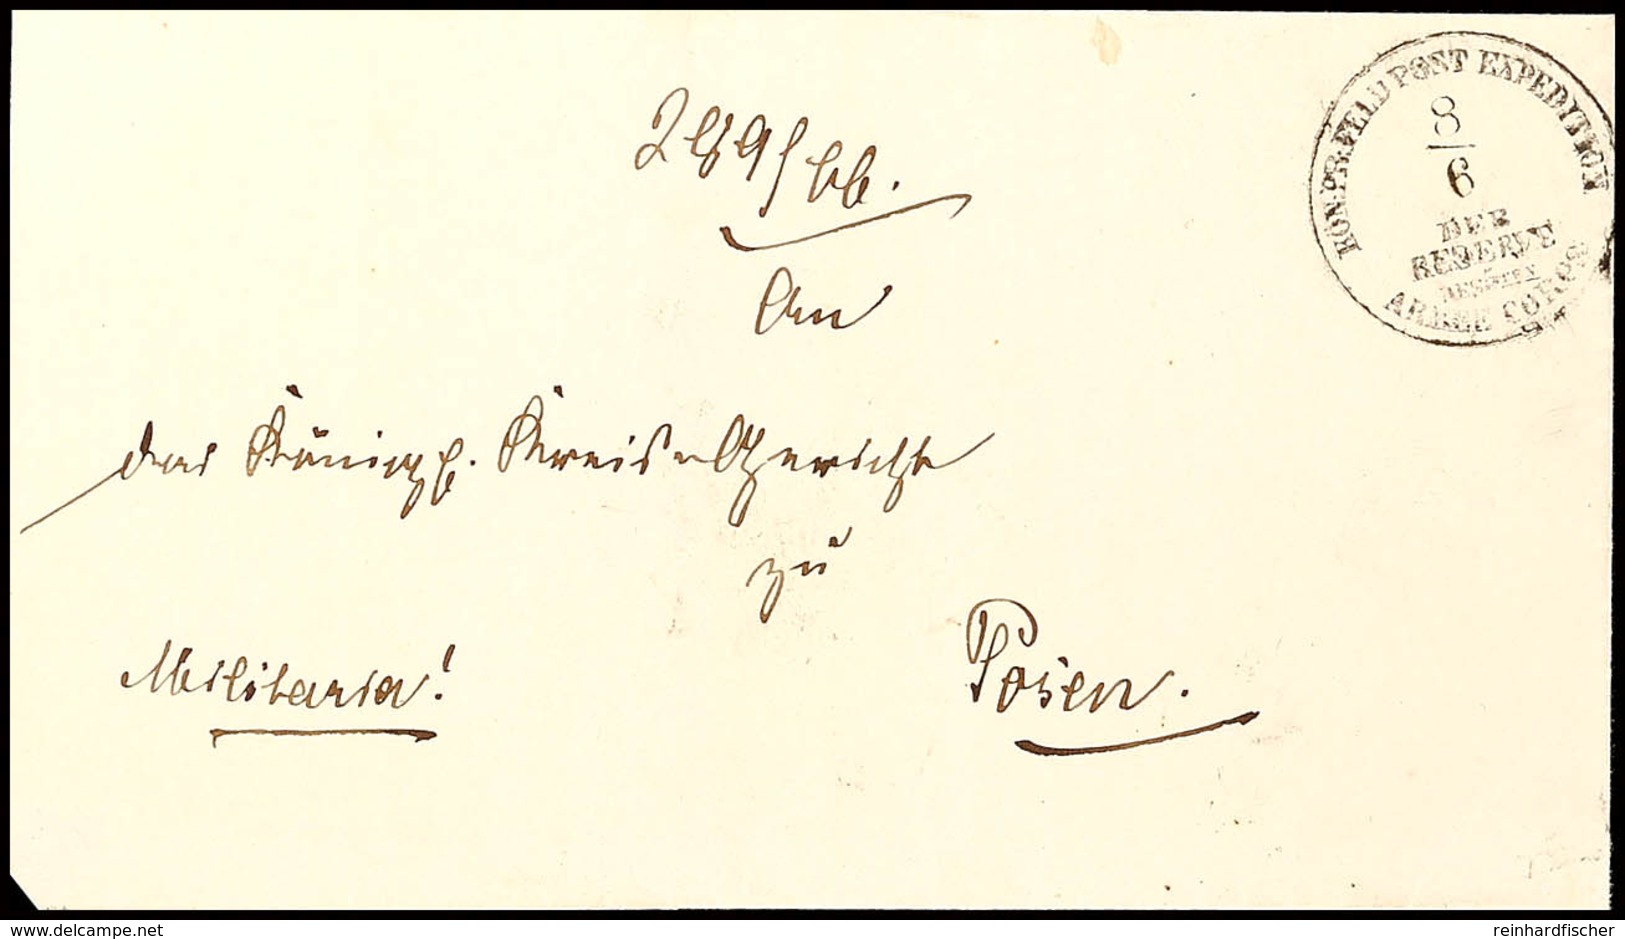 KÖN: PR: FELD POST EXPEDITION
8
6
DER
RESERVE
ARMEE CORPS
An
das Königl. Kreis-Gericht
zu
Militaria!
Posen.
delcampe.net
reinhardfischer